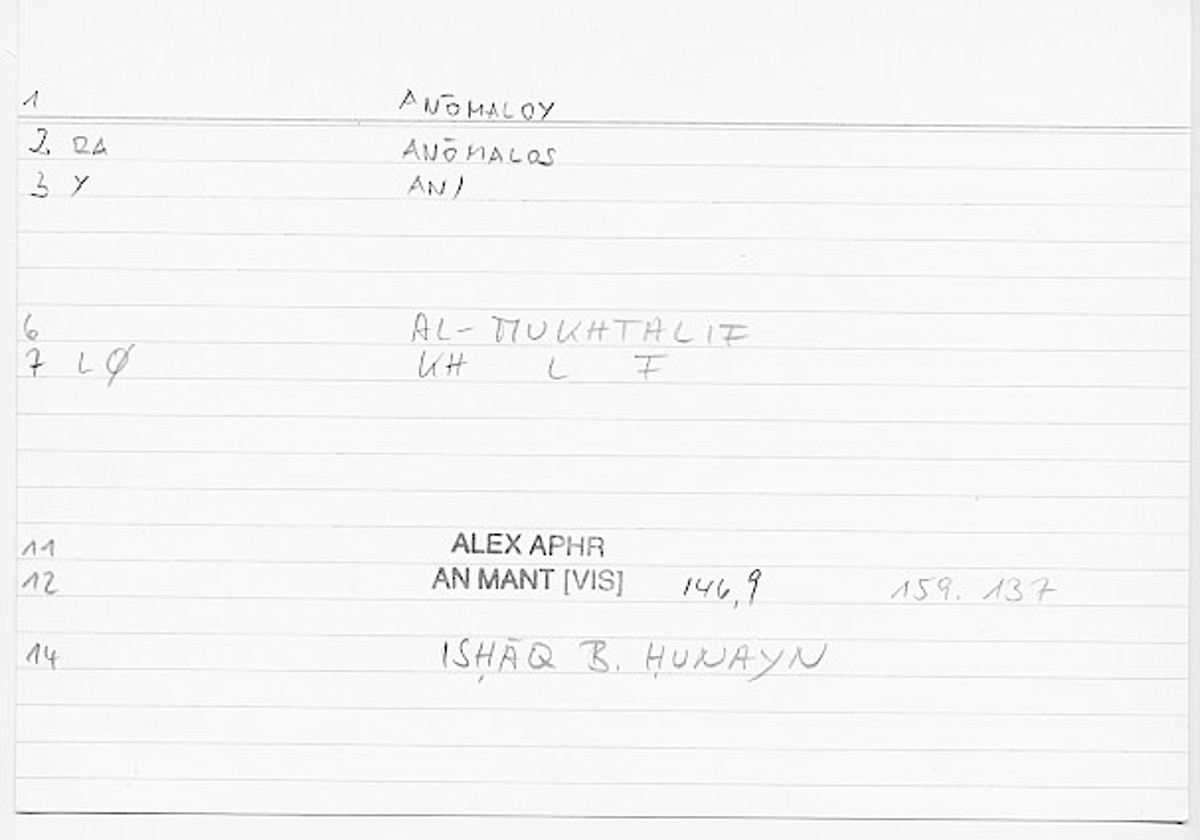 1 ANŌMALOY
2 RA ANŌMALOS
3 Y AN/
6 AL-MUKHTALIF
7 LØ KH L F
11 ALEX APHR
12 AN MANT [VIS] 146,9 159. 137
14 ISḤĀQ B. ḤUNAYN